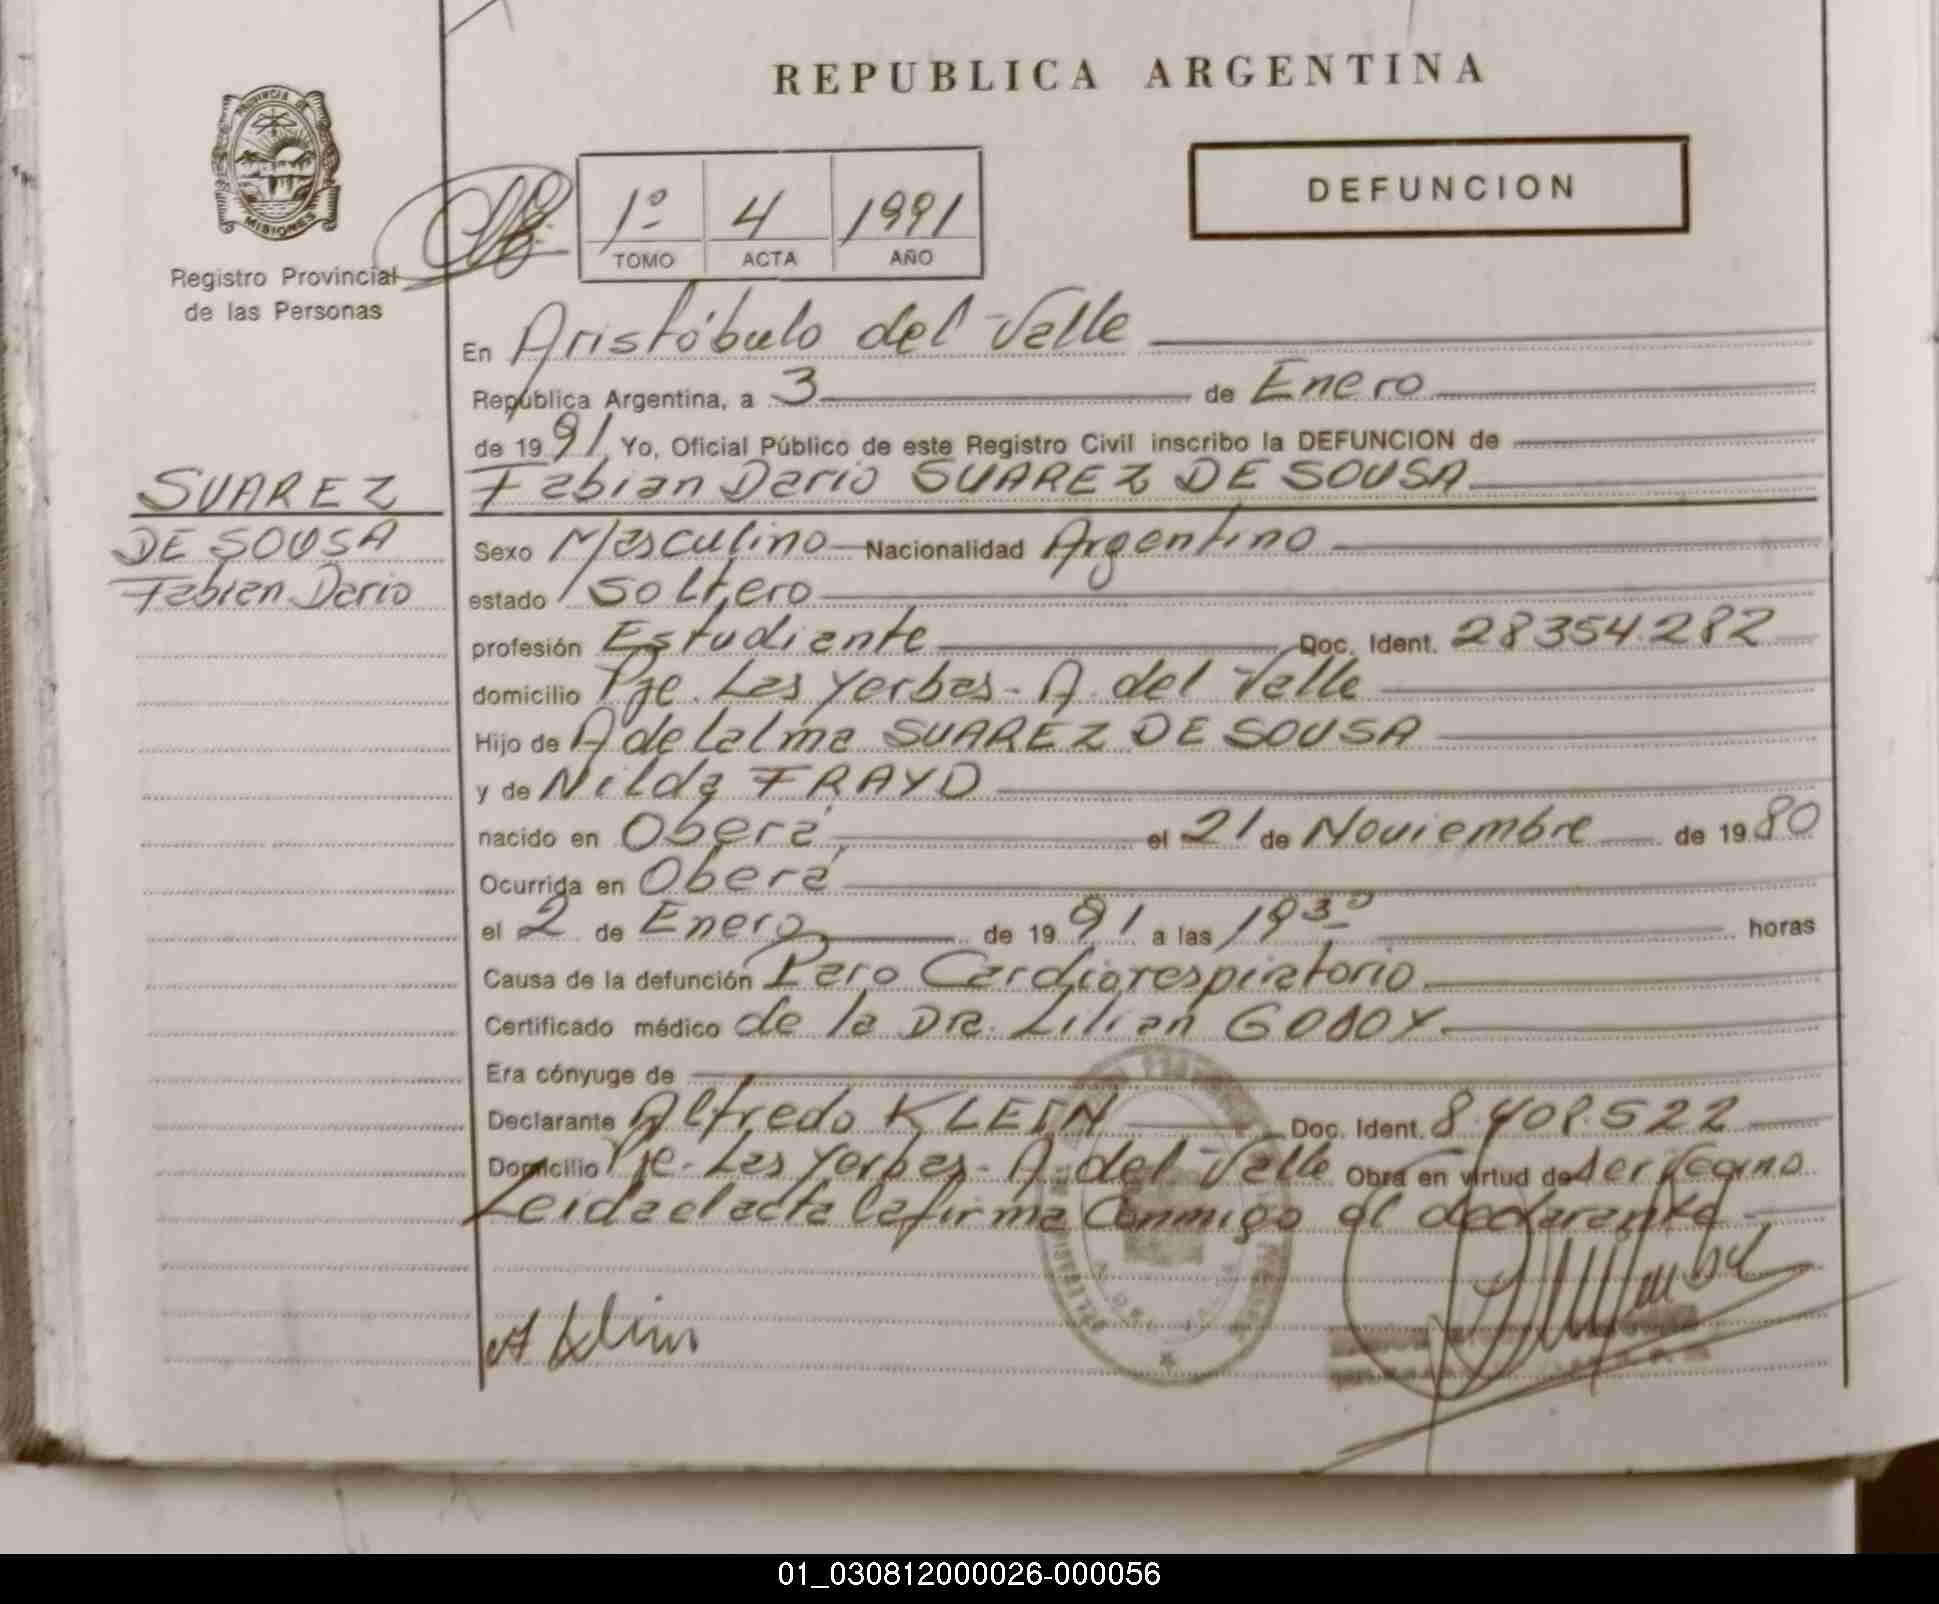 REPUBLICA ARGENTINA
PROVINCIA DE
MISIONES
Registro Provincial
de las Personas
1º 4 1991
TOMO ACTA AÑO
DEFUNCION
En Aristóbulo del Valle
República Argentina, a 3 de Enero
de 1991 Yo, Oficial Público de este Registro Civil inscribo la DEFUNCION de
SUAREZ
DE SOUSA
Fabian Dario
Fabian Dario SUAREZ DE SOUSA
Sexo Masculino Nacionalidad Argentino
estado soltero
profesión Estudiante Doc. Ident. 28354.282
domicilio Pje. Las Yerbas - A. del Valle
Hijo de Adelalma SUAREZ DE SOUSA
y de Nilda FRAYD
nacido en Oberá el 21 de Noviembre de 1980
Ocurrida en Oberá
el 2 de Enero de 1991 a las 19³⁰ horas
Causa de la defunción Paro Cardiorespiratorio
Certificado médico de la Dra. Lilian GODOY
Era cónyuge de
Declarante Alfredo KLEIN Doc. Ident. 8.408.522
Domicilio Pje. Las Yerbas - A. del Valle Obra en virtud de ser vecino
Leida el acta la firma Conmigo el declarante
A Klein
01_030812000026-000056